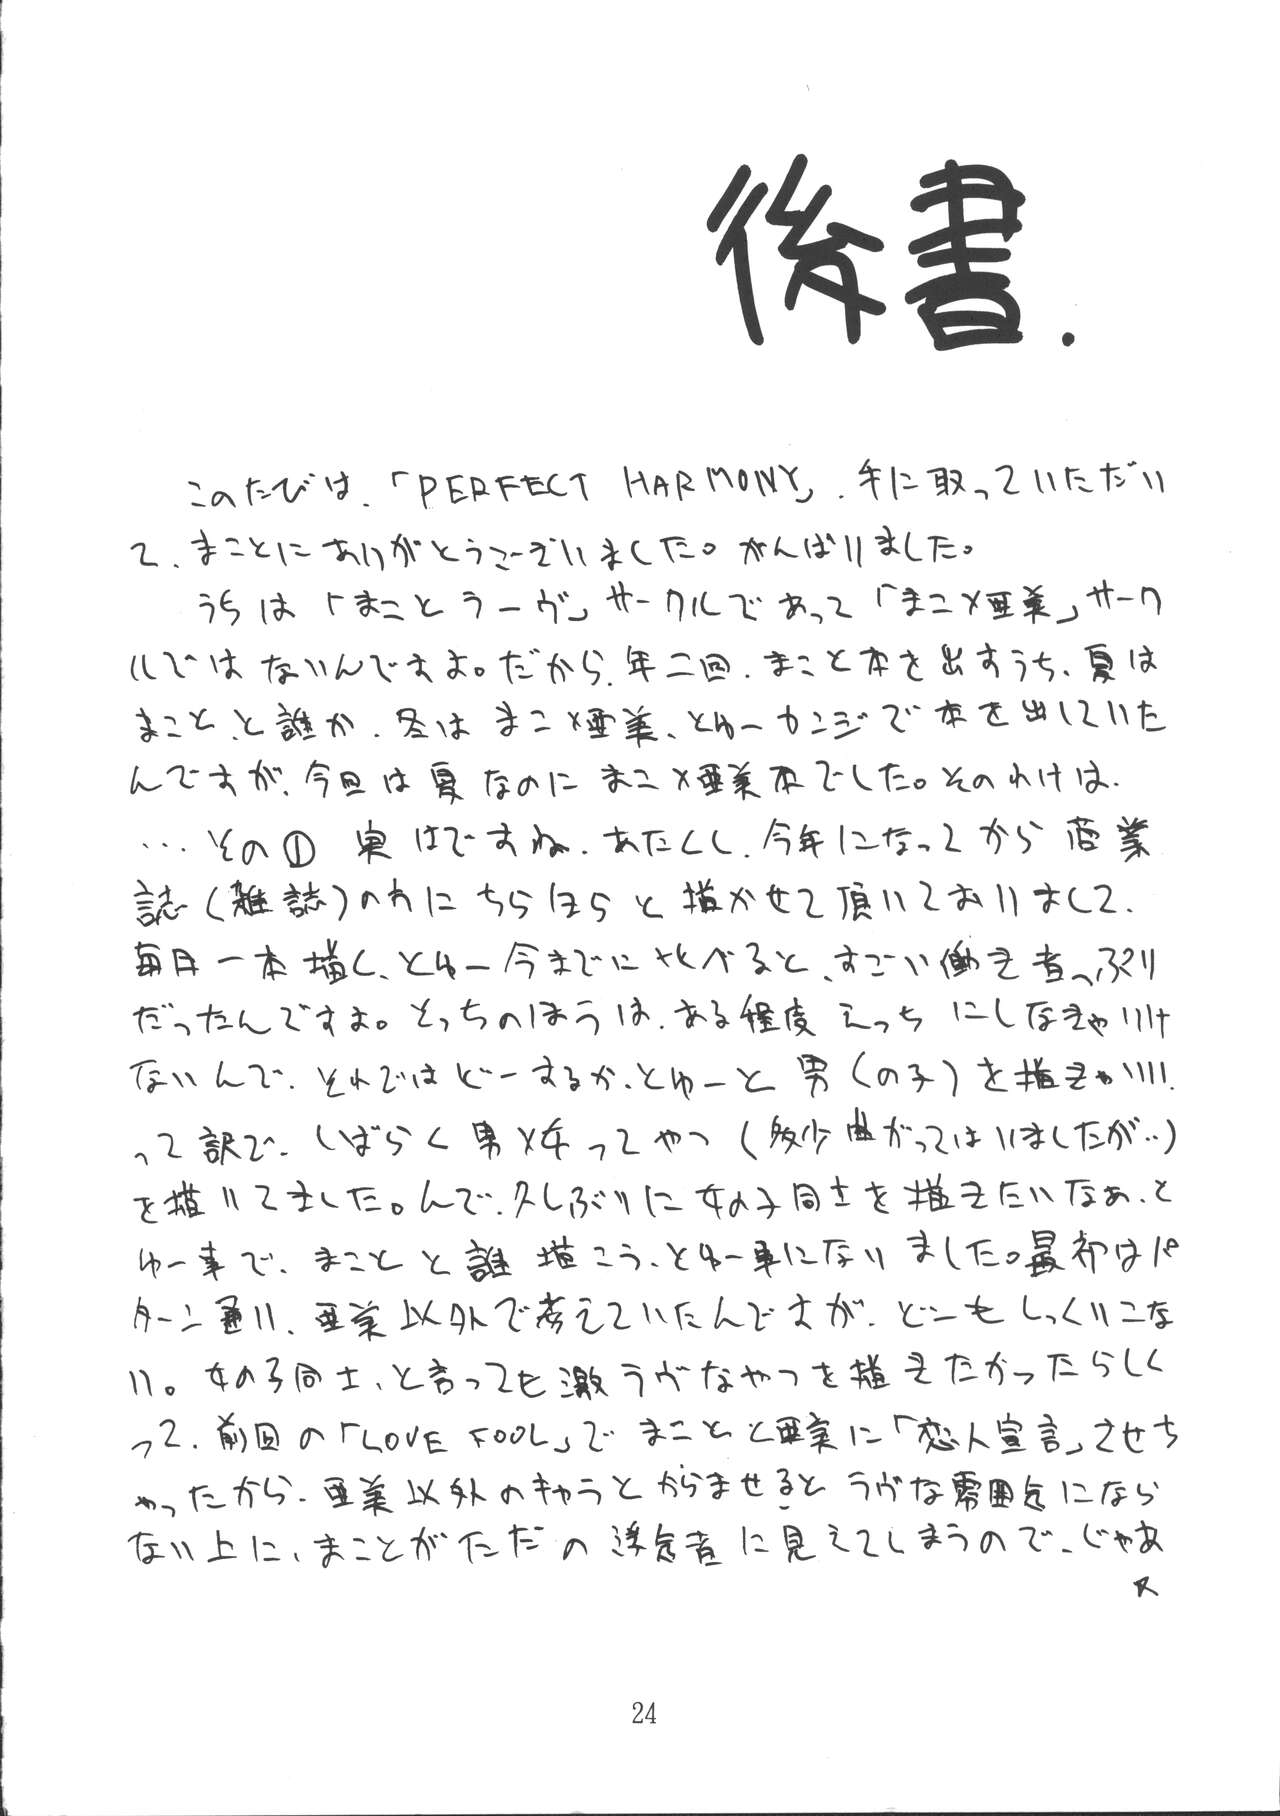 後書.
このたびは、「PERFECT HARMONY」、手に取っていただい
て、まことにありがとうございました。がんばりました。
うちは「まことラーヴ」サークルであって「まこ×亜美」サーク
ルではないんですよ。だから、年二回、まこと本を出すうち、夏は
まこと、と誰か、冬はまこ×亜美、とゆーカンジで本を出していた
んですが、今回は夏なのにまこ×亜美本でした。そのわけは、
…その① 実はですね、あたくし、今年になってから商業
誌(雑誌)の方にちらほらと描かせて頂いておりまして、
毎月一本描く、とゆー今までにくらべると、すごい働き者っぷり
だったんですよ。そっちのほうは、ある程度えっちにしなきゃいけ
ないんで、それではどーするか、とゆーと男(の子)を描きゃいい、
って訳で、しばらく男×女ってやつ(多少曲がってはいましたが‥)
を描いてました。んで、久しぶりに女の子同士を描きたいなぁ、と
ゆー事で、まことと誰描こう、とゆー事になりました。最初はパ
ターン通り、亜美以外で考えていたんですが、どーもしっくりこな
い。女の子同士、と言っても激ラヴなやつを描きたかったらしく
って、前回の「LOVE FOOL」でまことと亜美に「恋人宣言」させち
ゃったから、亜美以外のキャラとからませるとラヴな雰囲気になら
ない上に、まことがただの浮気者に見えてしまうので、じゃあ
24